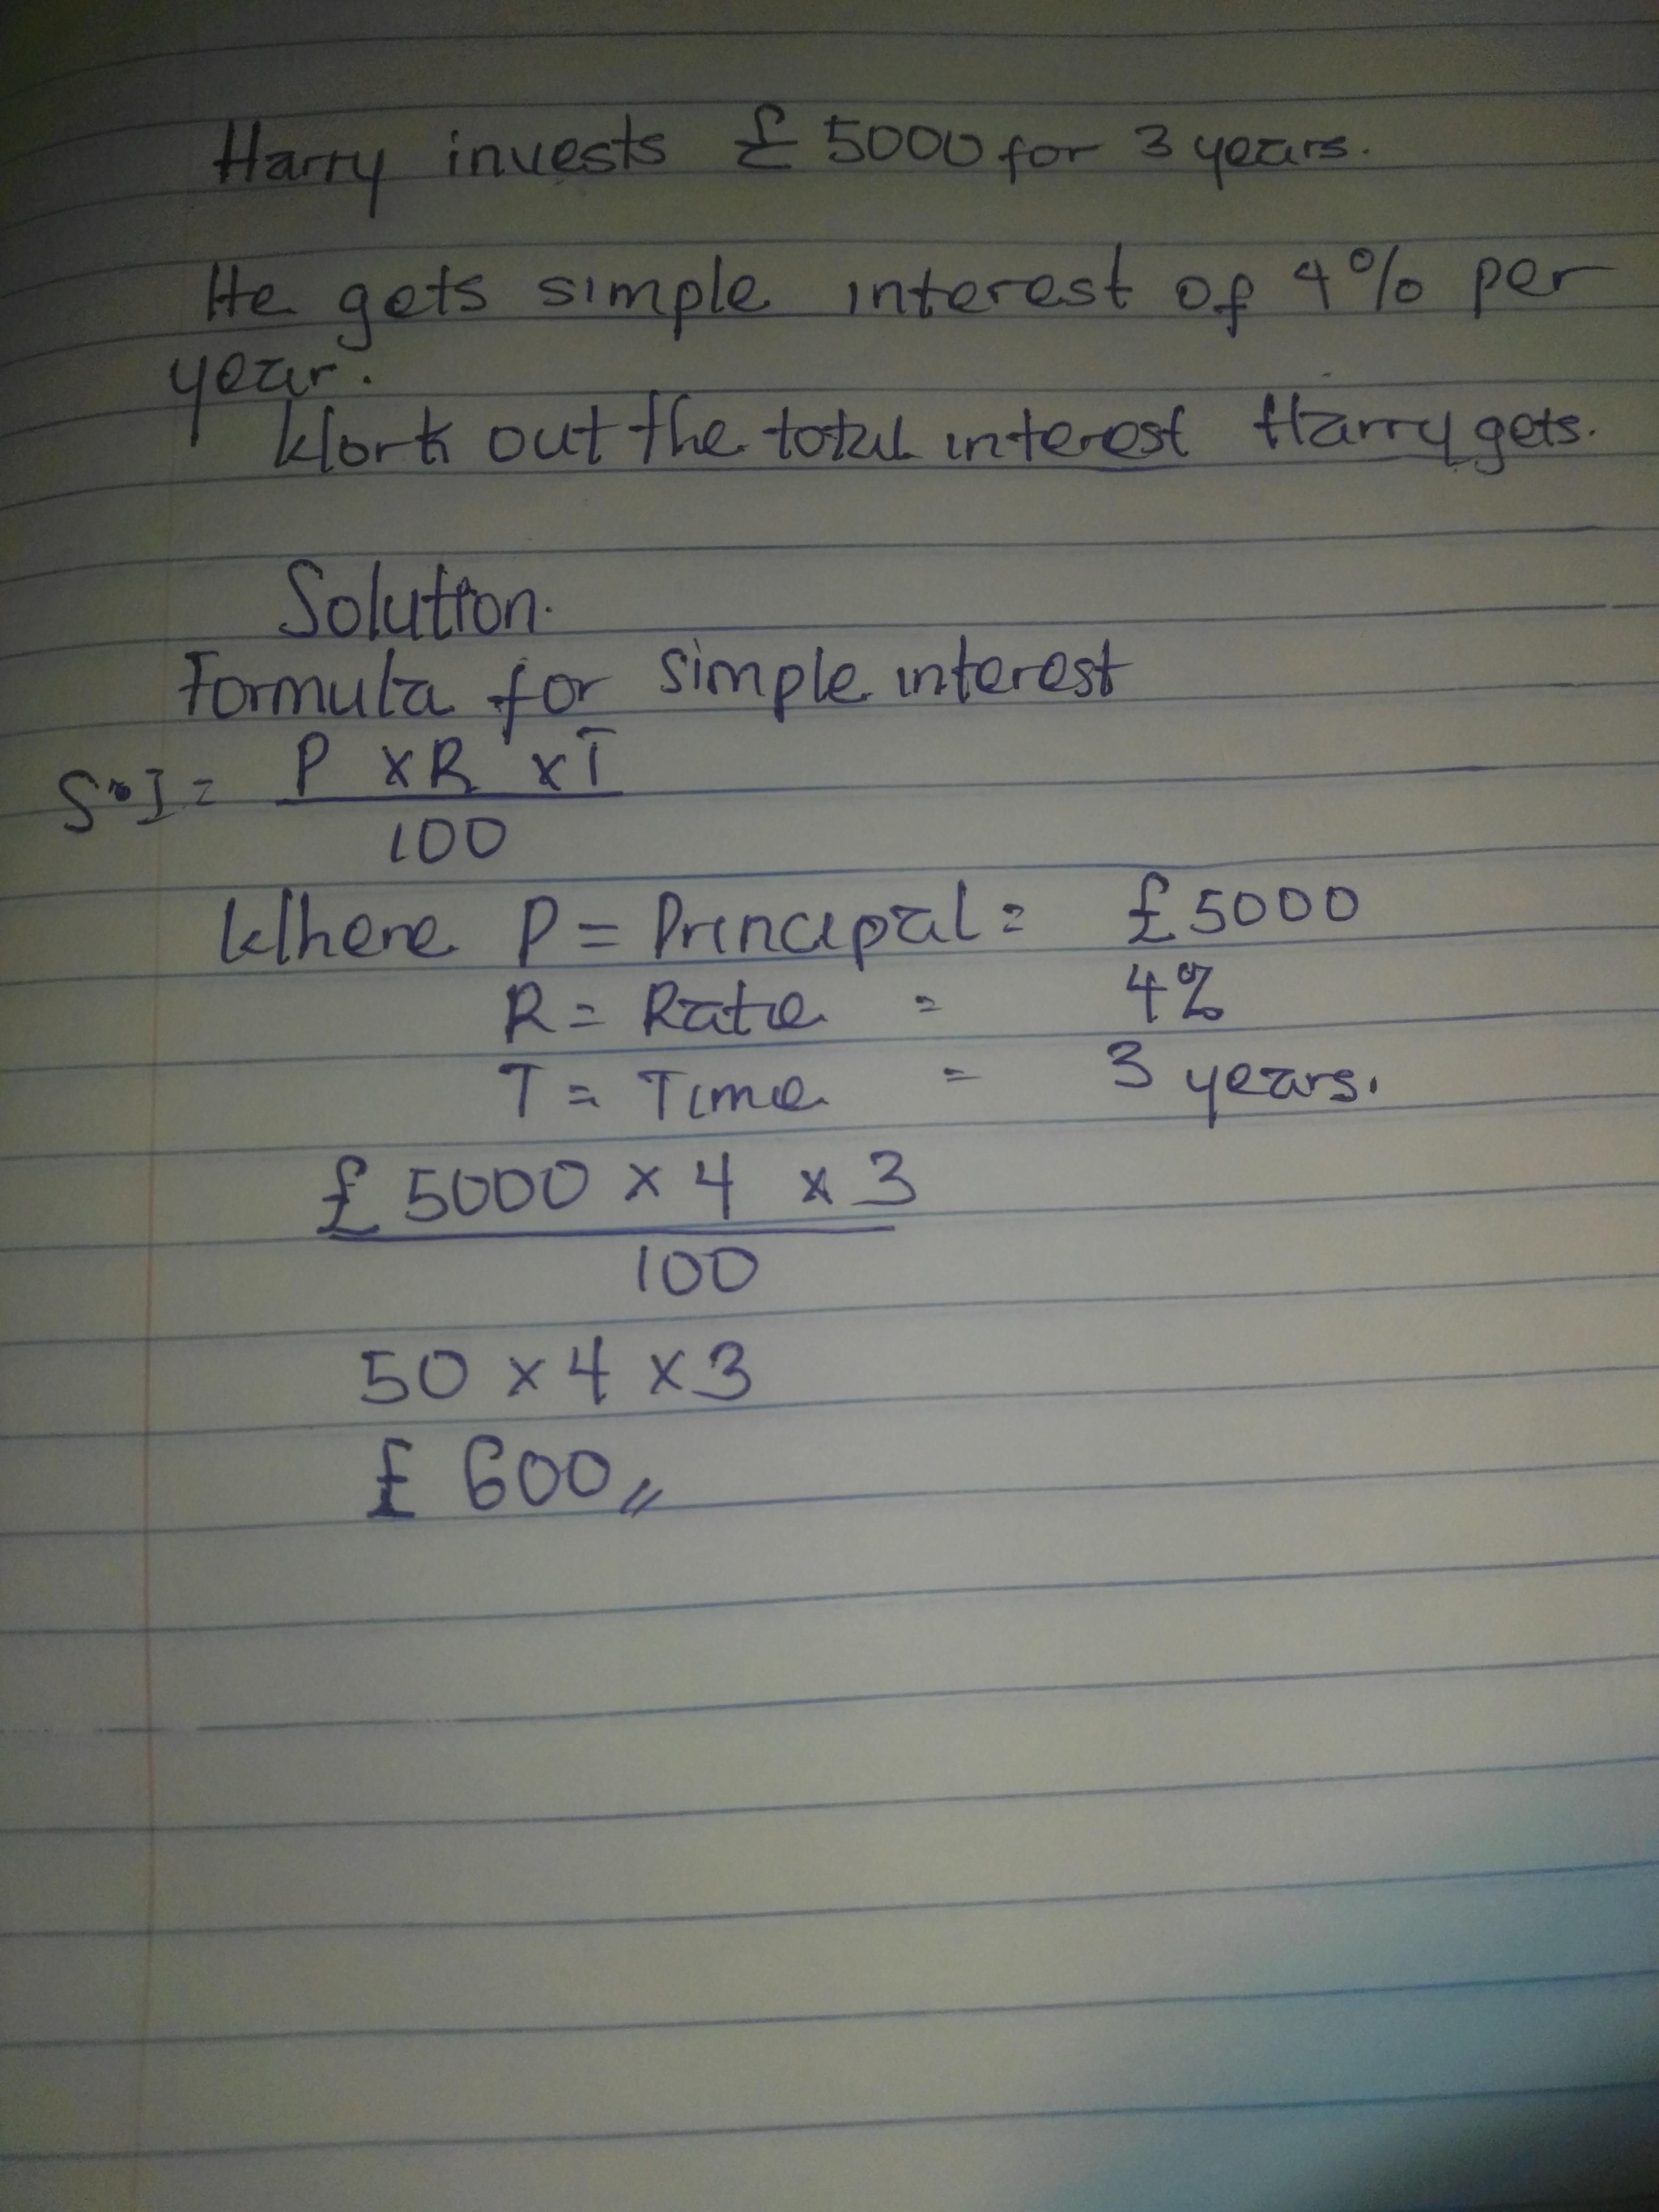 Harry invests £ 5000 for 3 years.
He gets simple interest of 4% per
year.
Work out the total interest Harry gets.
Solution.
Formula for simple interest
S.I = P x R x T
100
Where P = Principal = £5000
R = Rate = 4%
T = Time = 3 years.
£ 5000 x 4 x 3
100
50 x 4 x 3
£ 600 //